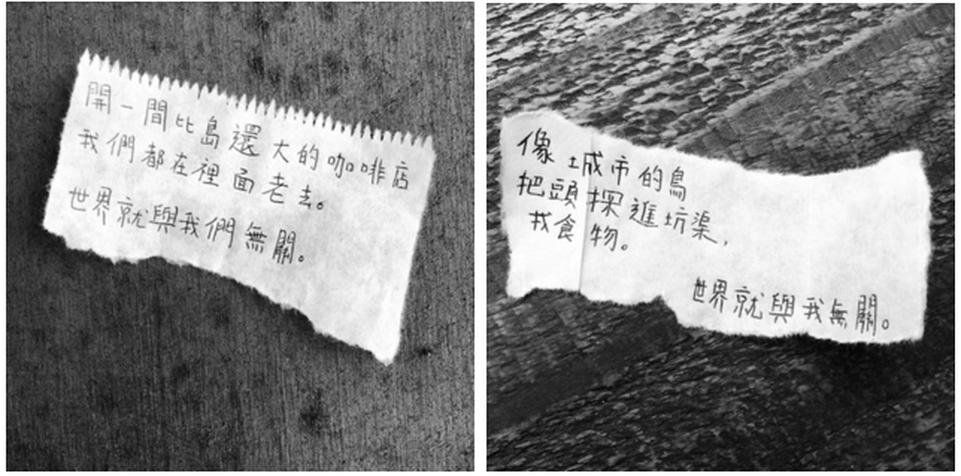 開一間比島還大的咖啡店
我們都在裡面老去。
世界就與我們無關。
像城市的鳥
把頭探進坑渠，
找食物。
世界就與我無關。